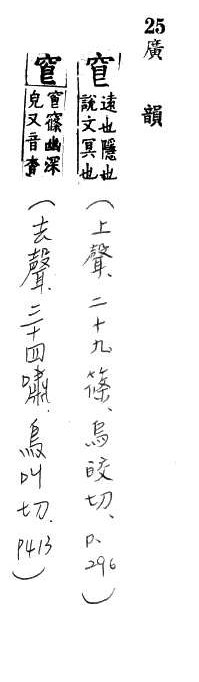 25
廣韻
窅 遠也隱也
說文冥也
(上聲、二十九篠、烏皎切、P.296)
窅 窅篠幽深
皃又音杳
(去聲、三十四嘯、烏叫切、P413)